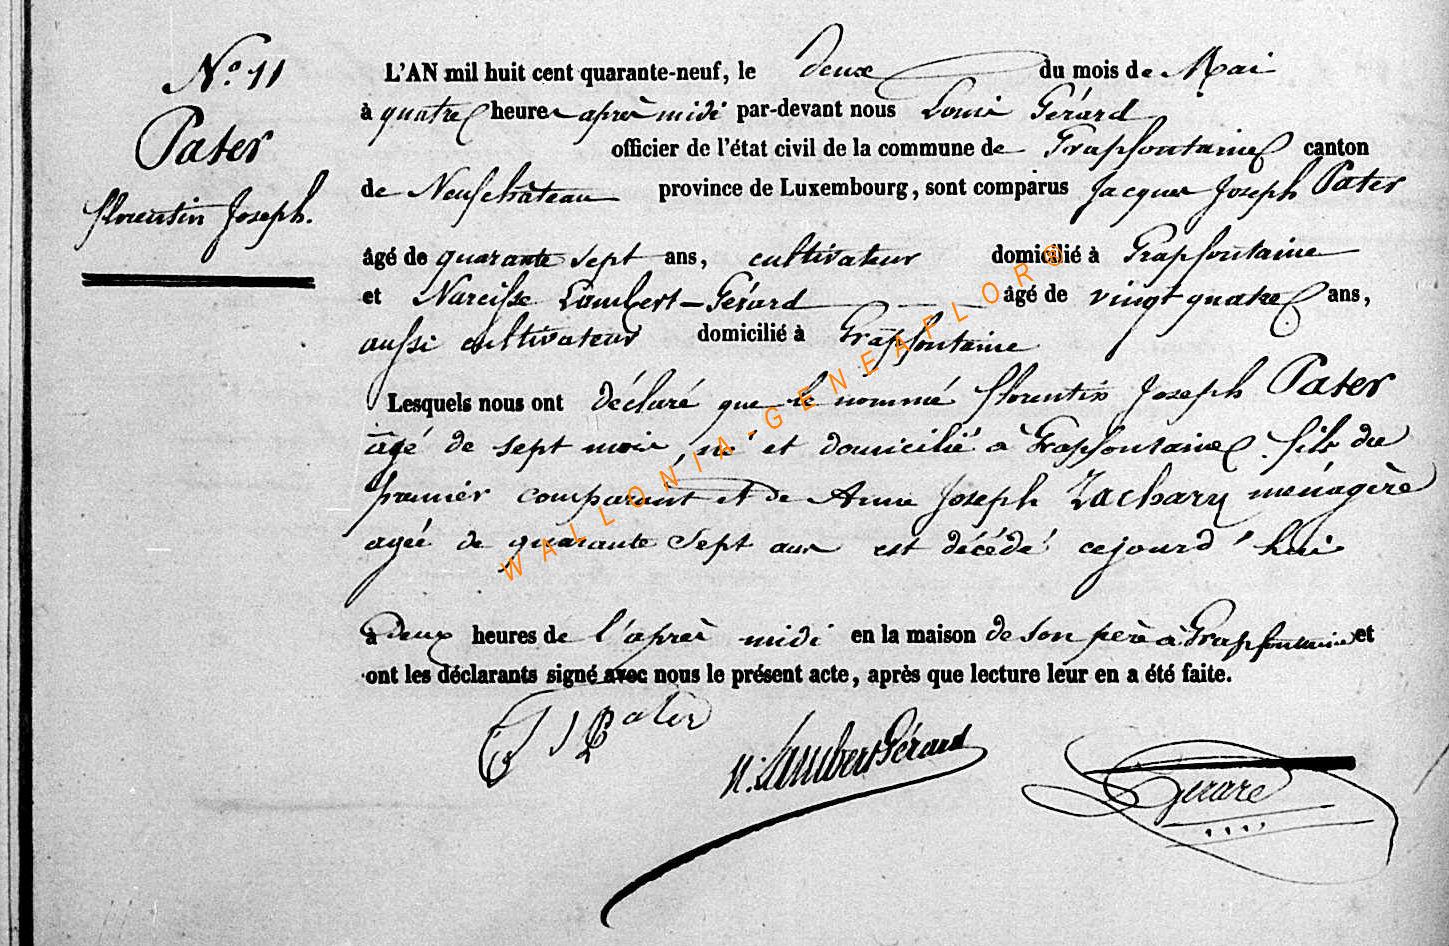 N.o 11
Pater
florentin Joseph.
L'AN mil huit cent quarante-neuf, le deux du mois de Mai
à quatre heures après midi par-devant nous Louis Gérard
officier de l'état civil de la commune de Grapfontaine canton
de Neufchâteau province de Luxembourg, sont comparus Jacques Joseph Pater
âgé de quarante sept ans, cultivateur domicilié à Grapfontaine
et Narcisse Lambert-Gérard âgé de vingt quatre ans,
aussi cultivateur domicilié à Grapfontaine
Lesquels nous ont déclaré que le nommé florentin Joseph Pater
âgé de sept mois, né et domicilié à Grapfontaine, fils du
premier comparant et de Anne Joseph Zachary ménagère
agée de quarante sept ans est décédé cejourd'hui
à deux heures de l'après midi en la maison de son père à Grapfontaine et
ont les déclarants signé avec nous le présent acte, après que lecture leur en a été faite.
J J Pater
N. Lambert Gérard
Gerard
WALLONIA-GENEAFLOR®